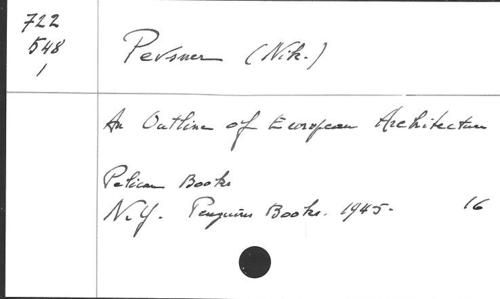 722
548
1
Pevsner (Nik.)
An Outline of European Architecture
Pelican Books
N.Y. Penguin Books. 1945. 16